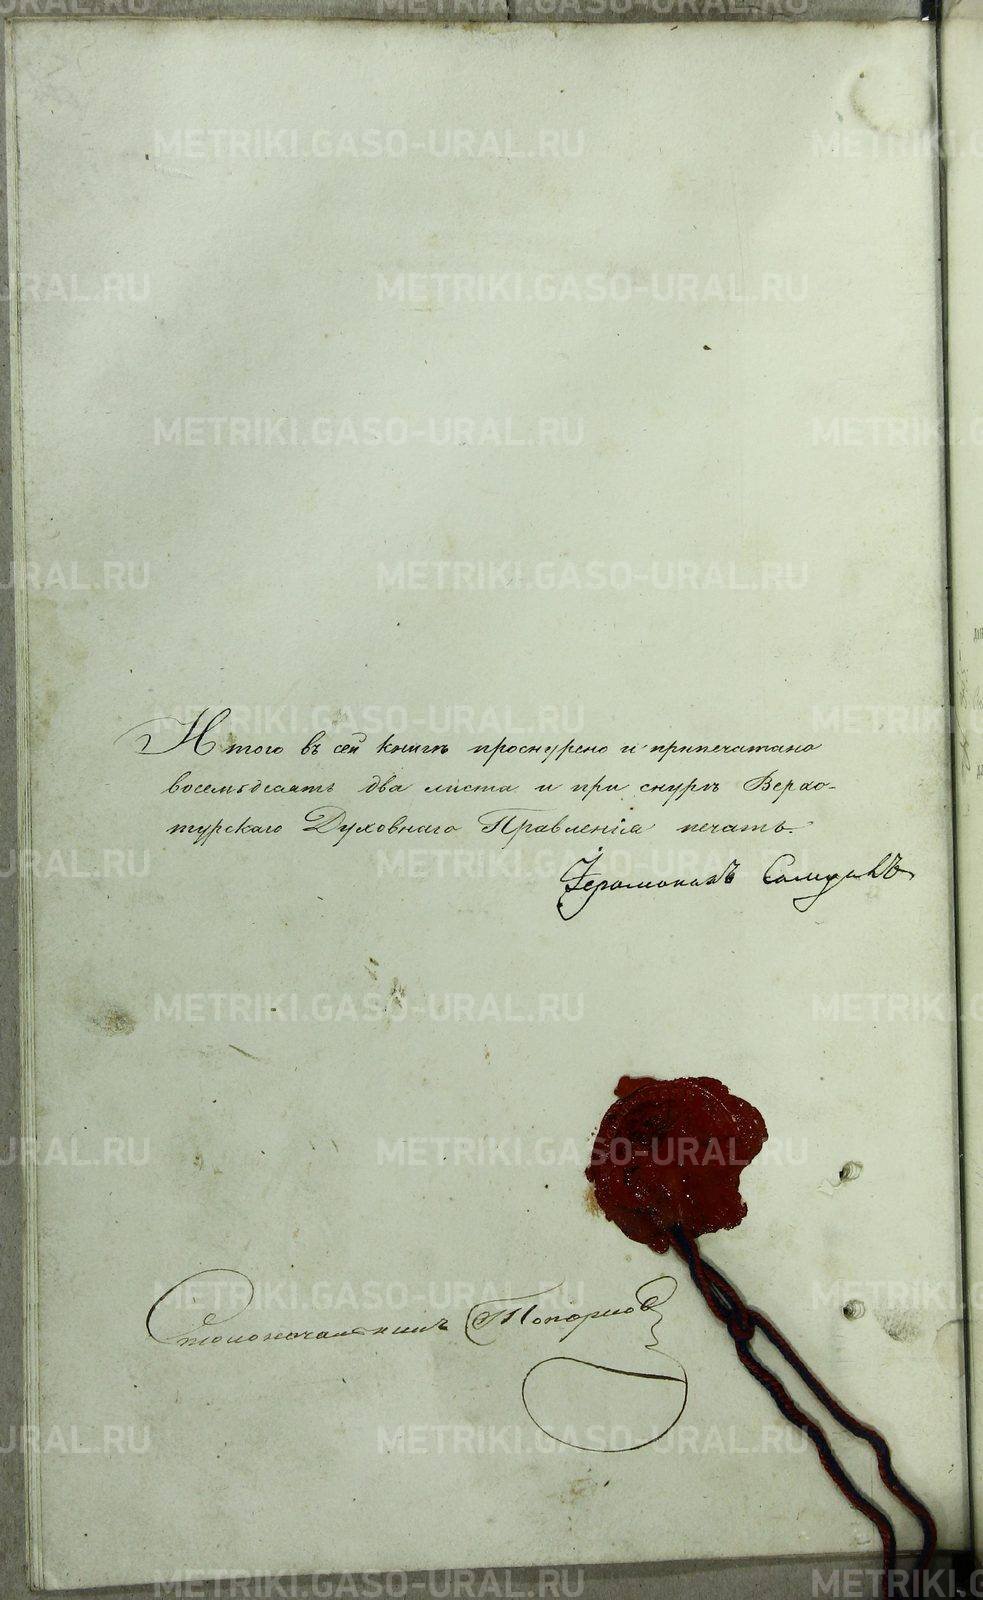 Итого въ сей книгѣ проснурено и припечатано
восемьдесятъ два листа и при снурѣ Верхо-
турскаго Духовнаго Правленія печать.
Іеромонахъ
Столоначальникъ Топорков
METRIKI.GASO-URAL.RU